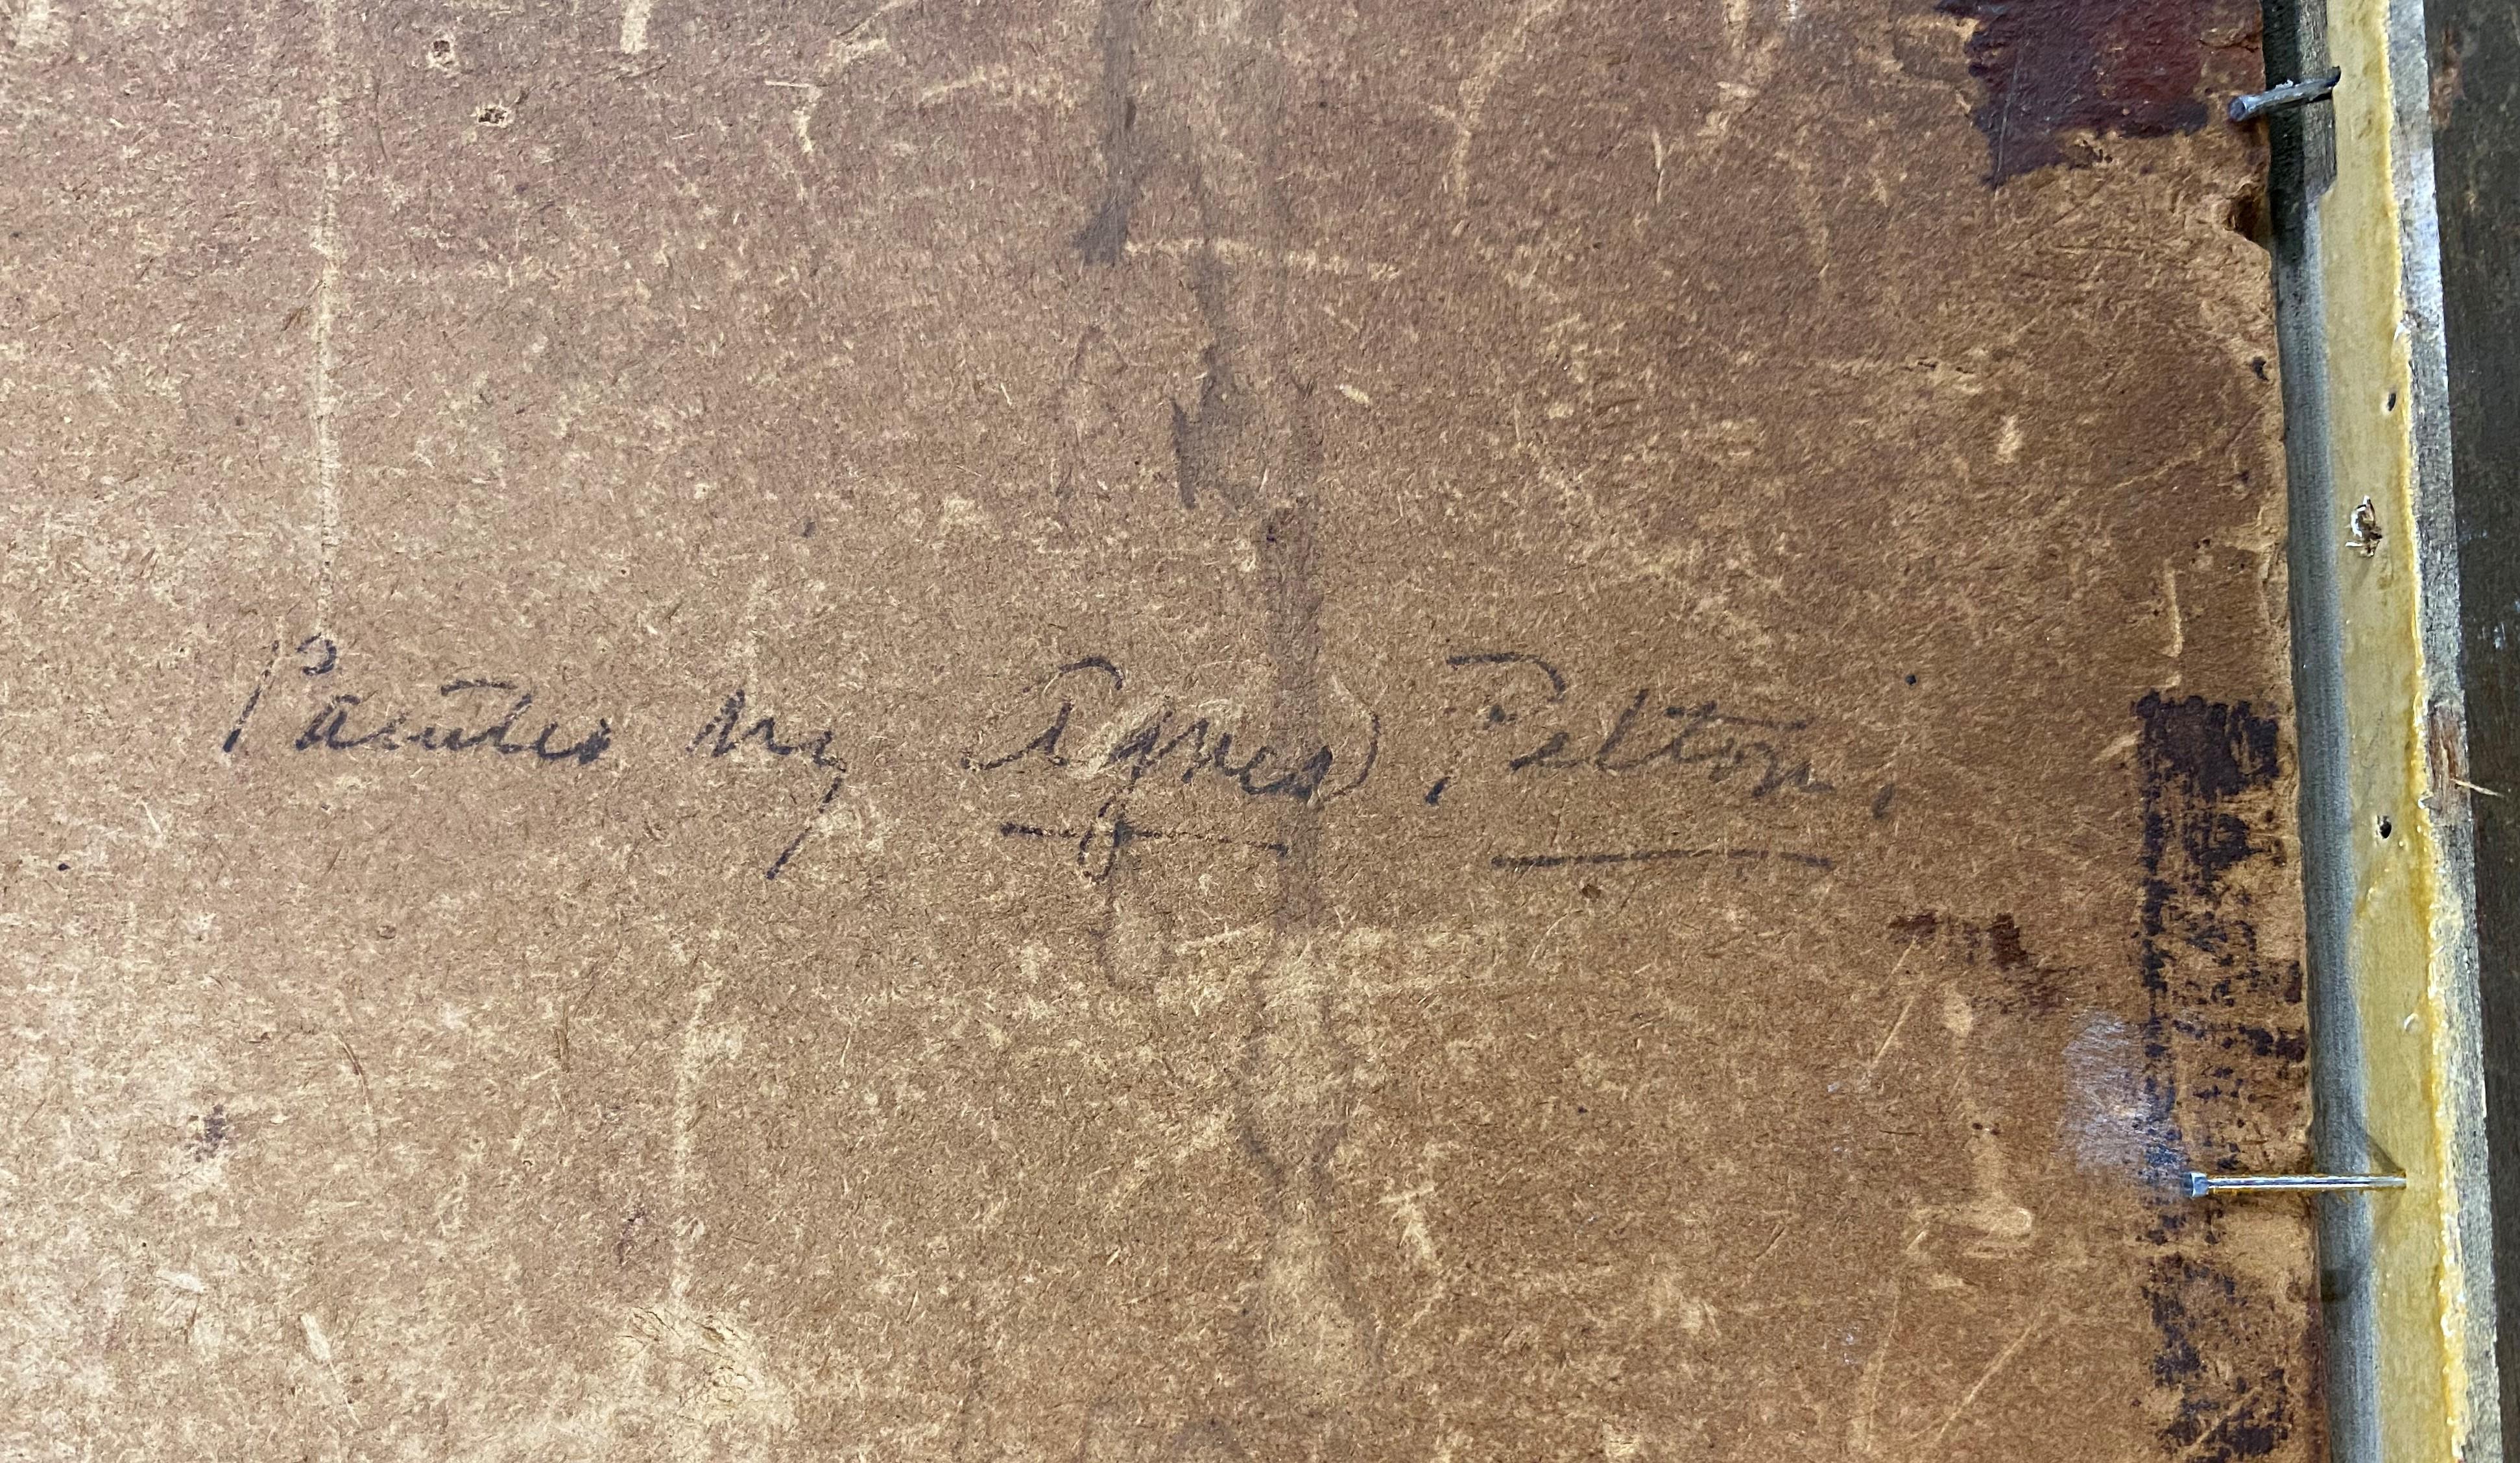 Painted by Agnes Pelton.